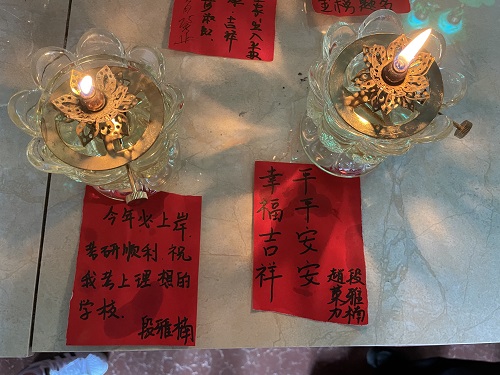 吉祥
今年必上岸
考研顺利 祝
我考上理想的
学校.
段雅楠
平平安安
幸福吉祥
段雅楠
赵荣力